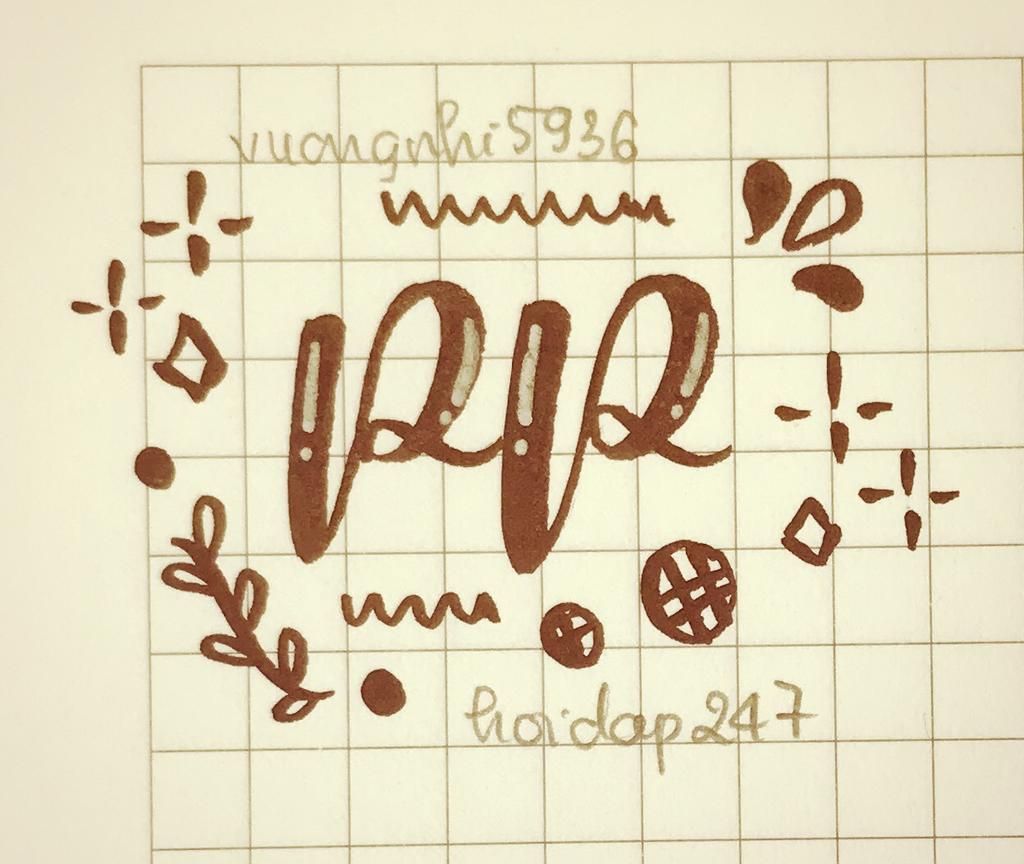 vuongnhi5936
pp
hoidap247